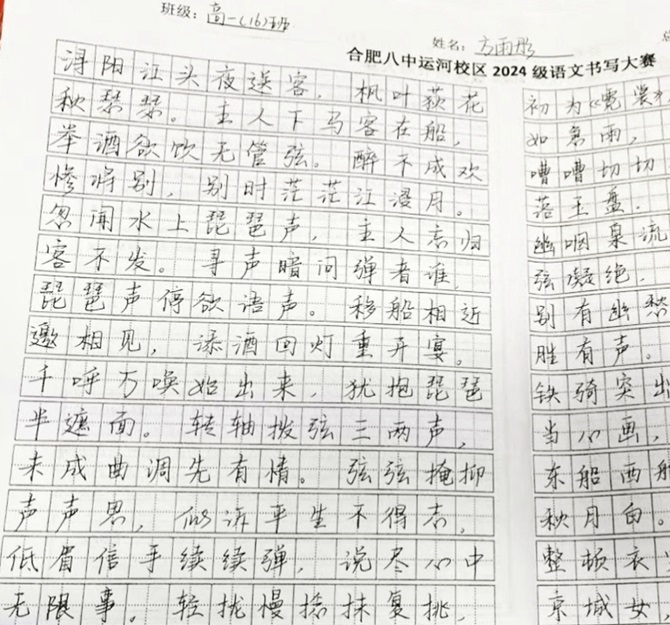 班级：高一(16)班
姓名：方雨彤
合肥八中运河校区2024级语文书写大赛
浔阳江头夜送客，枫叶荻花
秋瑟瑟。主人下马客在船，
举酒欲饮无管弦。醉不成欢
惨将别，别时茫茫江浸月。
忽闻水上琵琶声，主人忘归
客不发。寻声暗问弹者谁，
琵琶声停欲语声。移船相近
邀相见，添酒回灯重开宴。
千呼万唤始出来，犹抱琵琶
半遮面。转轴拨弦三两声，
未成曲调先有情。弦弦掩抑
声声思，似诉平生不得志，
低眉信手续续弹，说尽心中
无限事。轻拢慢捻抹复挑，
初为《霓裳》
如急雨，
嘈嘈切切
落玉盘。
幽咽泉流
弦凝绝，
别有幽愁
胜有声。
铁骑突出
当心画，
东船西舫
秋月白。
整顿衣
京城女